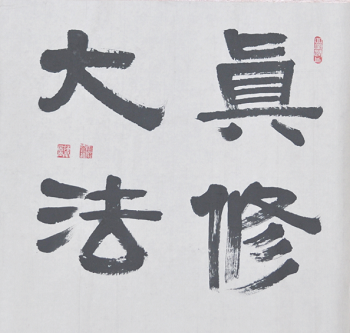 眞修
大法